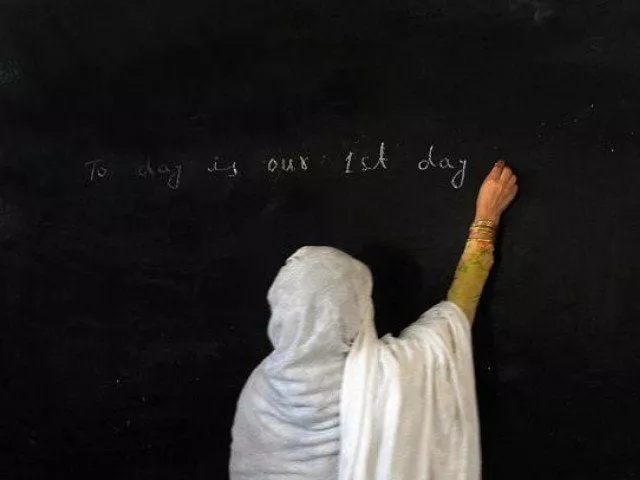 To day is our 1st day